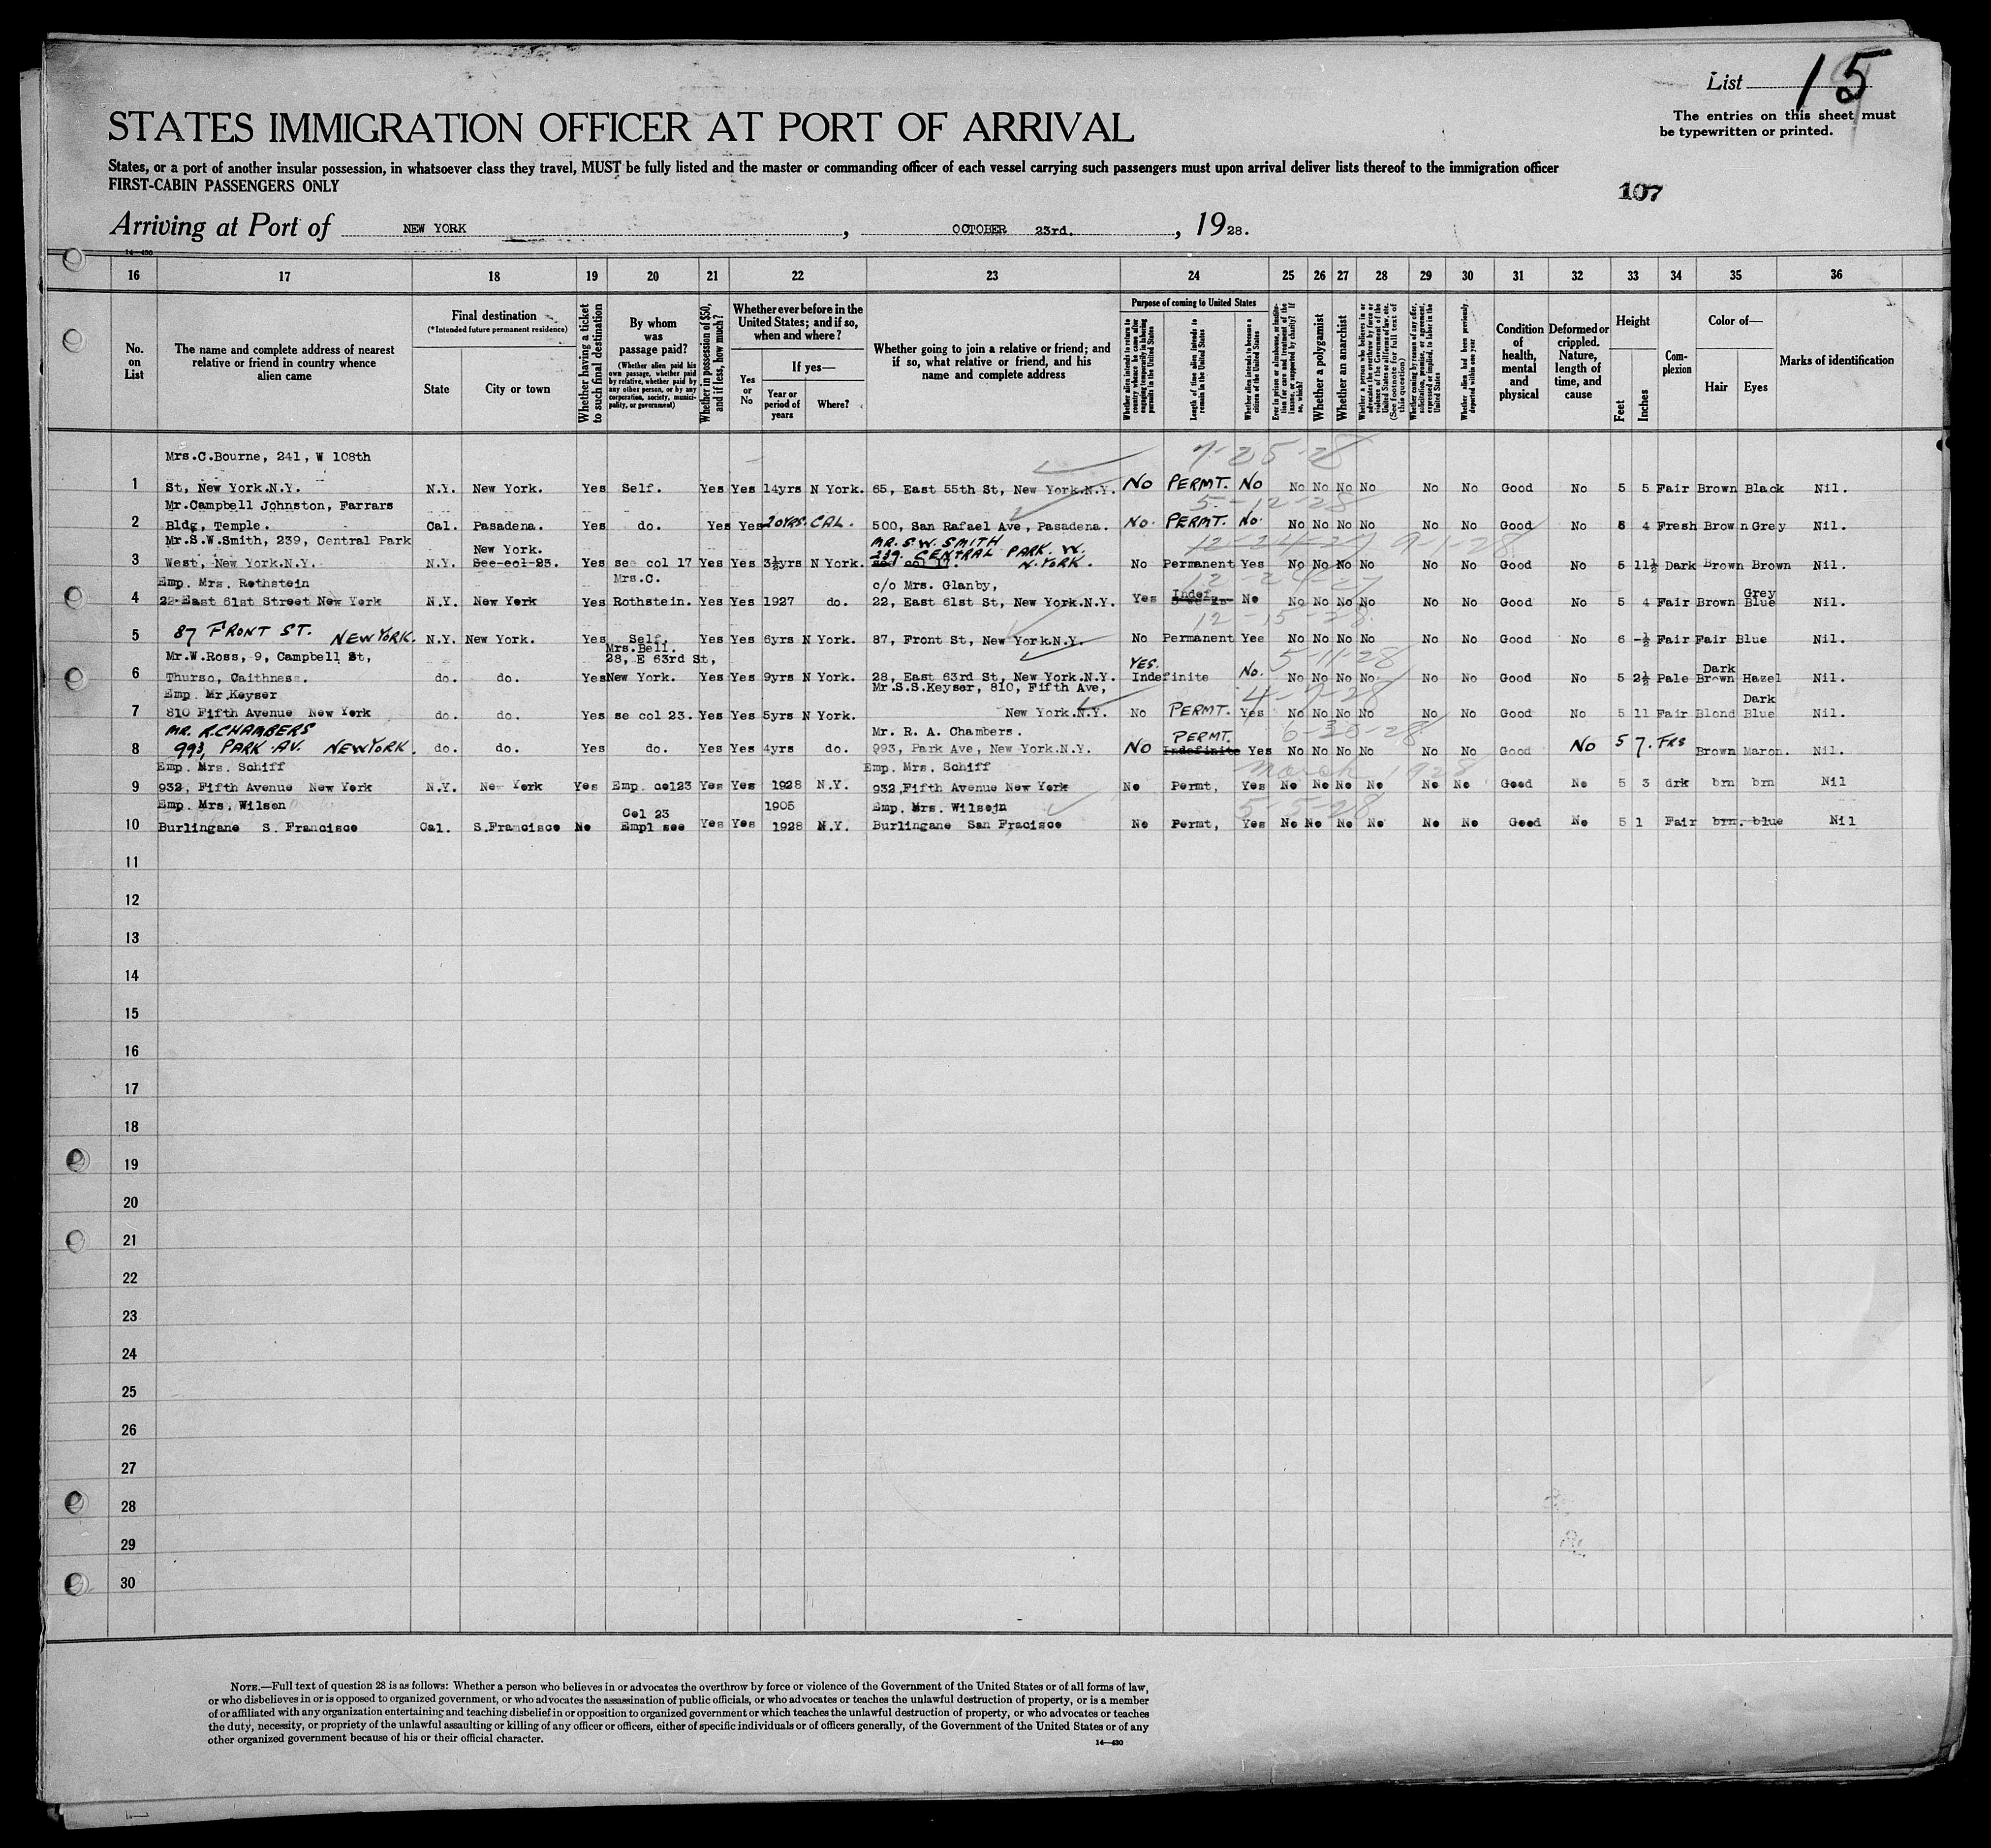 List 15
The entries on this sheet must
be typewritten or printed.
STATES IMMIGRATION OFFICER AT PORT OF ARRIVAL
States, or a port of another insular possession, in whatsoever class they travel, MUST be fully listed and the master or commanding officer of each vessel carrying such passengers must upon arrival deliver lists thereof to the immigration officer
FIRST-CABIN PASSENGERS ONLY
107
Arriving at Port of NEW YORK, OCTOBER 23rd., 1928.
14-430
16 17 18 19 20 21 22 23 24 25 26 27 28 29 30 31 32 33 34 35 36
No. on List
The name and complete address of nearest relative or friend in country whence alien came
Final destination
(*Intended future permanent residence)
State
City or town
Whether having a ticket to such final destination
By whom was passage paid?
(Whether alien paid his own passage, whether paid by relative, whether paid by any other person, or by any corporation, society, municipality, or government)
Whether in possession of $50, and if less, how much?
Whether ever before in the United States; and if so, when and where?
Yes or No
If yes—
Year or period of years
Where?
Whether going to join a relative or friend; and if so, what relative or friend, and his name and complete address
Purpose of coming to United States
Whether alien intends to return to country whence he came after engaging temporarily in laboring pursuits in the United States
Length of time alien intends to remain in the United States
Whether alien intends to become a citizen of the United States
Ever in prison or almshouse, or institution for care and treatment of the insane, or supported by charity? If so, which?
Whether a polygamist
Whether an anarchist
Whether a person who believes in or advocates the overthrow by force or violence of the Government of the United States or all forms of law, etc. (See footnote for full text of this question)
Whether coming by reason of any offer, solicitation, promise, or agreement, expressed or implied, to labor in the United States
Whether alien had been previously deported within one year
Condition of health, mental and physical
Deformed or crippled. Nature, length of time, and cause
Height
Feet
Inches
Complexion
Color of—
Hair
Eyes
Marks of identification
Mrs.C.Bourne, 241, W 108th 7-25-28
1 St, New York.N.Y. N.Y. New York. Yes Self. Yes Yes 14yrs N York. 65, East 55th St, New York.N.Y. No PERMT. No No No No No No No Good No 5 5 Fair Brown Black Nil.
Mr.Campbell Johnston, Farrars 5-12-28
2 Bldg, Temple. Cal. Pasadena. Yes do. Yes Yes 20YRS. CAL. 500, San Rafael Ave, Pasadena. No. PERMT. No. No No No No No No Good No 5 4 Fresh Brown Grey Nil.
Mr.S.W.Smith, 239, Central Park New York. MR. S.W. SMITH 239. CENTRAL PARK. W. 12-24-27 9-1-28
3 West, New York.N.Y. N.Y. See col 23. Yes see col 17 Yes Yes 3½yrs N York. see col 17. N.YORK. No Permanent Yes No No No No No No Good No 5 11½ Dark Brown Brown Nil.
Emp. Mrs. Rothstein Mrs.C. c/o Mrs. Glanby, 12-24-27
4 22 East 61st Street New York N.Y. New York Yes Rothstein. Yes Yes 1927 do. 22, East 61st St, New York.N.Y. Yes Indef. No No No No No No No Good No 5 4 Fair Brown Grey Blue Nil.
12-15-28.
5 87 FRONT ST. NEW YORK. N.Y. New York. Yes Self. Yes Yes 6yrs N York. 87, Front St, New York.N.Y. No Permanent Yes No No No No No No Good No 6 -½ Fair Fair Blue Nil.
Mr.W.Ross, 9, Campbell St, Mrs.Bell. 28, E 63rd St, YES. 5-11-28
6 Thurso, Caithness. do. do. Yes New York. Yes Yes 9yrs N York. 28, East 63rd St, New York.N.Y. Indefinite No. No No No No No No Good No 5 2½ Pale Dark Brown Hazel Nil.
Emp. Mr.Keyser Mr.S.S.Keyser, 810, Fifth Ave, 4-7-28
7 810 Fifth Avenue New York do. do. Yes se col 23. Yes Yes 5yrs N York. New York.N.Y. No PERMT. Yes No No No No No No Good No 5 11 Fair Blond Dark Blue Nil.
MR. R.CHAMBERS Mr. R. A. Chambers. PERMT. 6-30-28
8 993, PARK AV. NEW YORK. do. do. Yes do. Yes Yes 4yrs do. 993, Park Ave, New York.N.Y. NO Indefinite Yes No No No No No No Good No 5 7. FRS Brown Maron. Nil.
Emp. Mrs. Schiff Emp. Mrs. Schiff March 1928
9 932, Fifth Avenue New York N.Y. New York Yes Emp. col23 Yes Yes 1928 N.Y. 932,Fifth Avenue New York No Permt, Yes No No No No No No Good No 5 3 drk brn brn Nil
Emp. Mrs. Wilson Col 23 1905 Emp. Mrs. Wilsojn 5-5-28
10 Burlingane S. Francisco Cal. S.Francisco No Empl see Yes Yes 1928 N.Y. Burlingane San Fracisco No Permt, Yes No No No No No No Good No 5 1 Fair brn. blue Nil
11
12
13
14
15
16
17
18
19
20
21
22
23
24
25
26
27
28
29
30
NOTE.—Full text of question 28 is as follows: Whether a person who believes in or advocates the overthrow by force or violence of the Government of the United States or of all forms of law,
or who disbelieves in or is opposed to organized government, or who advocates the assassination of public officials, or who advocates or teaches the unlawful destruction of property, or is a member
of or affiliated with any organization entertaining and teaching disbelief in or opposition to organized government or which teaches the unlawful destruction of property, or who advocates or teaches
the duty, necessity, or propriety of the unlawful assaulting or killing of any officer or officers, either of specific individuals or of officers generally, of the Government of the United States or of any
other organized government because of his or their official character.
14-430